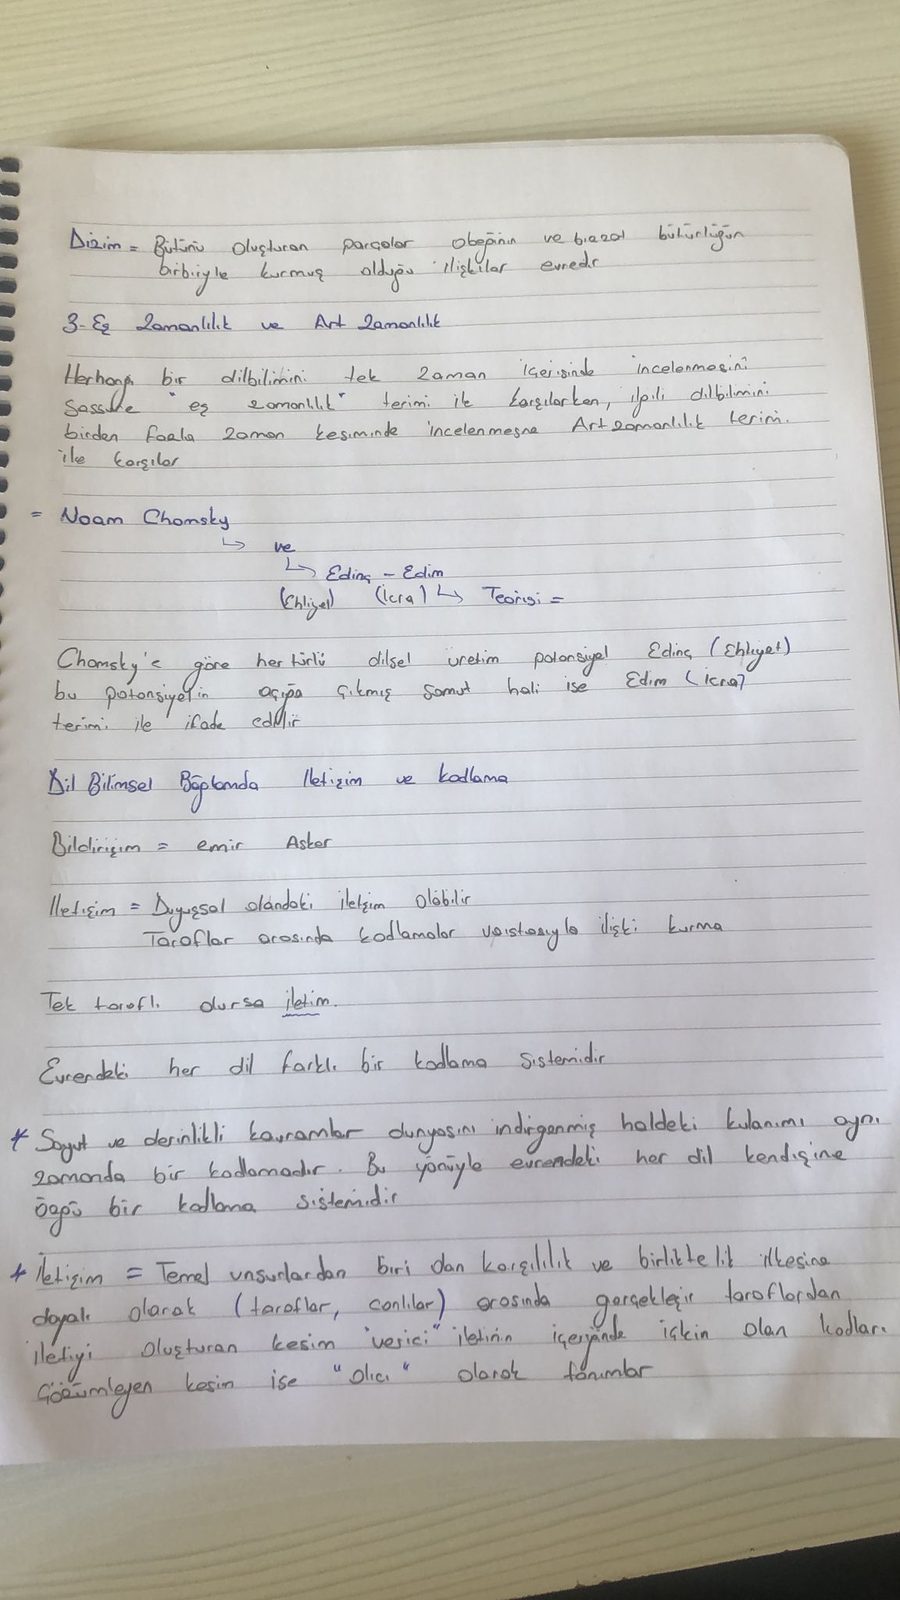 Dizim = Bütünü oluşturan parçalar öbeğinin ve bizzat bütünlüğün
birbiriyle kurmuş olduğu ilişkiler evredir
3- Eş Zamanlılık ve Art Zamanlılık
Herhangi bir dilbilimini tek zaman içerisinde incelenmesini
"eş zamanlılık" terimi ile karşılarken, ilgili dilbilimini
birden fazla zaman kesiminde incelenmesine Art zamanlılık terimi
ile karşılar
= Noam Chomsky
↳ ve
↳ Edinç - Edim
(Ehliyet) (İcra) ↳ Teorisi =
Chomsky'e göre her türlü dilsel üretim potansiyel Edinç (Ehliyet)
bu potansiyelin açığa çıkmış somut hali ise Edim (İcra)
terimi ile ifade edilir
Dil Bilimsel Bağlamda İletişim ve kodlama
Bildirişim = emir Asker
İletişim = Duyuşsal alandaki iletişim olabilir
Taraflar arasında kodlamalar vasıtasıyla ilişki kurma
Tek taraflı olursa iletim.
Evrendeki her dil farklı bir kodlama sistemidir
* Soyut ve derinlikli kavramlar dünyasını indirgenmiş haldeki kulanımı aynı
zamanda bir kodlamadır. Bu yönüyle evrendeki her dil kendisine
özgü bir kodlama sistemidir
* İletişim = Temel unsurlardan biri olan karşılılık ve birliktelik ilkesine
dayalı olarak (taraflar, canlılar) arasında gerçekleşir taraflardan
iletiyi oluşturan kesim "verici" iletinin içeriğinde içkin olan kodları
çözümleyen kesim ise "alıcı" olarak tanımlar